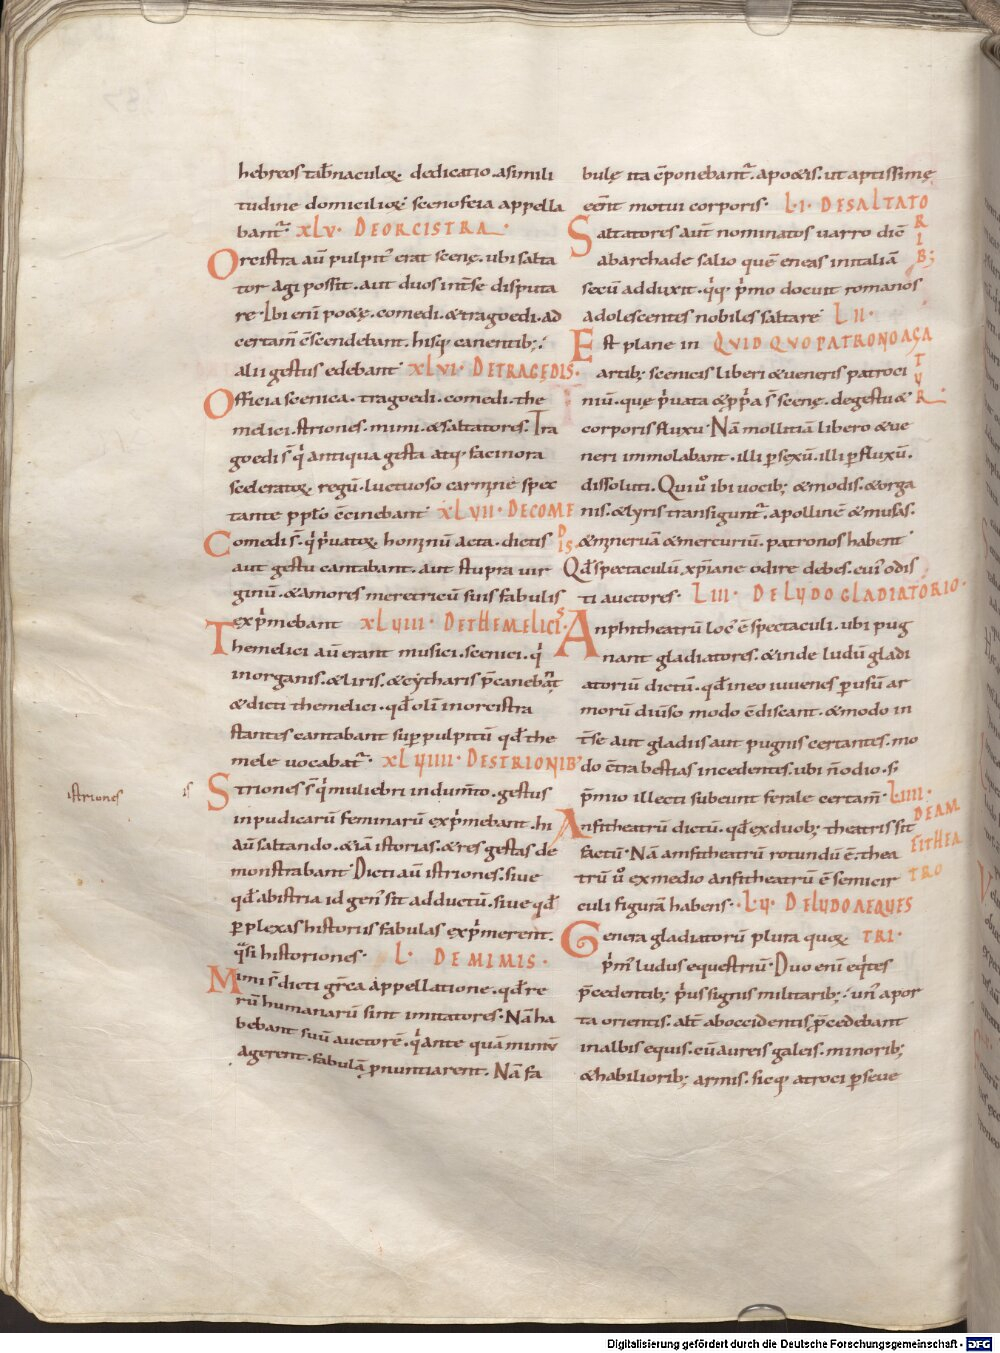 hebreos tab̄naculoꝝ. dedicatio. asimili
tudine domicilioꝝ scenofeia appella
bant̄. XLV. DE ORCISTRA.
Orcistra aū pulpit̄ erat scenę. ubi salta
tor agi possit. aut duo int̄ se disputa
re. Ibi enī poetę. comedi. & tragoedi. ad
certam̄ c̄scendebant. hisq; canentib;.
alii gestus edebant XLVI. DE TRAGĘDIS.
Officia scenica. tragoedi. comedi. the
melici. striones. mimi. & saltatores. Tra
goedi s̄ q̓ antiqua gesta atq; facinora
sceleratoꝝ regū. luctuoso carmine spec
tante pp̄lo c̄cinebant XLVII. DE COME
DIS
Comedi s̄. q̓ p̓uatoꝝ hominū acta. dictis
aut gestu cantabant. aut stupra uir
ginū. & amores meretricū suis fabulis
exp̓mebant XLVIII. DE THEMELICIS
Themelici aū erant musici. scenici. q̓
in organis. & liris. & cytharis p̄canebat̄
& dicti themelici. qđ olī in orcistra
stantes cantabant sup̱ pulpitū qđ the
mele uocabat̄. XLVIIII. DE STRIONIB;
istriones is
Striones s̄ q̓ muliebri indum̄to. gestus
inpudicarū feminarū exp̓mebant. hi
aū saltando. & iā istorias. & res gestas de
monstrabant Dicti aū istriones. siue
qđ ab istria id gen̄ sit adductū. siue qđ
ꝑplexas historiis fabulas exp̓merent.
q̄si historiones. L. DE MIMIS.
Mimi s̄ dicti gr̄ca appellatione. qđ re
rū humanarū sint imitatores. Nā ha
bebant suū auctorē. q̓ ante quā mimū
agerent. fabulā ꝓnuntiarent. Nā fa
bulę ita c̄ponebant̄. a poetis. ut aptissimę
eēnt motui corporis. LI. DE SALTATO
RIB;
Saltatores aut̄ nominatos uarro dic̄
ab archade salio quē eneas in italiā
secū adduxit. q̓q; p̓mo docuit romanos
adolescentes nobiles saltare LII.
Est plane in QVID QVO PATRONO AGA
TVR.
artib; scenicis liberi & ueneris patroci
niū. quę p̓uata & pp̄a s̄ scenę. de gestu &
corporis fluxu Nā mollitiā libero & ue
neri immolabant. illi ꝑ sexū. illi ꝑ fluxū.
dissoluti. Qui u̓ ibi uocib; & modis. & orga
nis. & lyris transigunt̄. apollinē & musas.
& mineruā & mercuriū. patronos habent
Qđ spectaculū xp̄iane odire debes. cui᾽ odis
ti auctores. LIII. DE LVDO GLADIATORIO.
Anphitheatrū loc᾽ ē spectaculi. ubi pug
nant gladiatores. & inde ludū gladi
atoriū dictū. qđ in eo iuuenes ꝑ usū ar
morū diuso modo c̄discant. & modo in
t̄ se aut gladiis aut pugnis certantes. mo
do c̄tra bestias incedentes. ubi n̄ odio. s;
p̓mio illecti subeunt ferale certam̄. LIIII.
DE AM
FITHEA
TRO
Anfitheatrū dictū. qđ ex duob; theatris sit
factū. Nā amfitheatrū rotundū ē. thea
trū u̓ ex medio anfitheatrū ē semicir
culi figurā habens. LV. DE LVDO AEQVES
TRI.
Genera gladiatorū plura quoꝝ
p̓m᾽ ludus equestriū. Duo enī eq̓tes
p̄cedentib; p̓us signis militarib;. un᾽ a por
ta orientis. alt̄ ab occidentis p̄cedebant
in albis equis. cū aureis galeis. minorib;
& habiliorib; armis. sicq; atroci ꝑseue
Digitalisierung gefördert durch die Deutsche Forschungsgemeinschaft - DFG